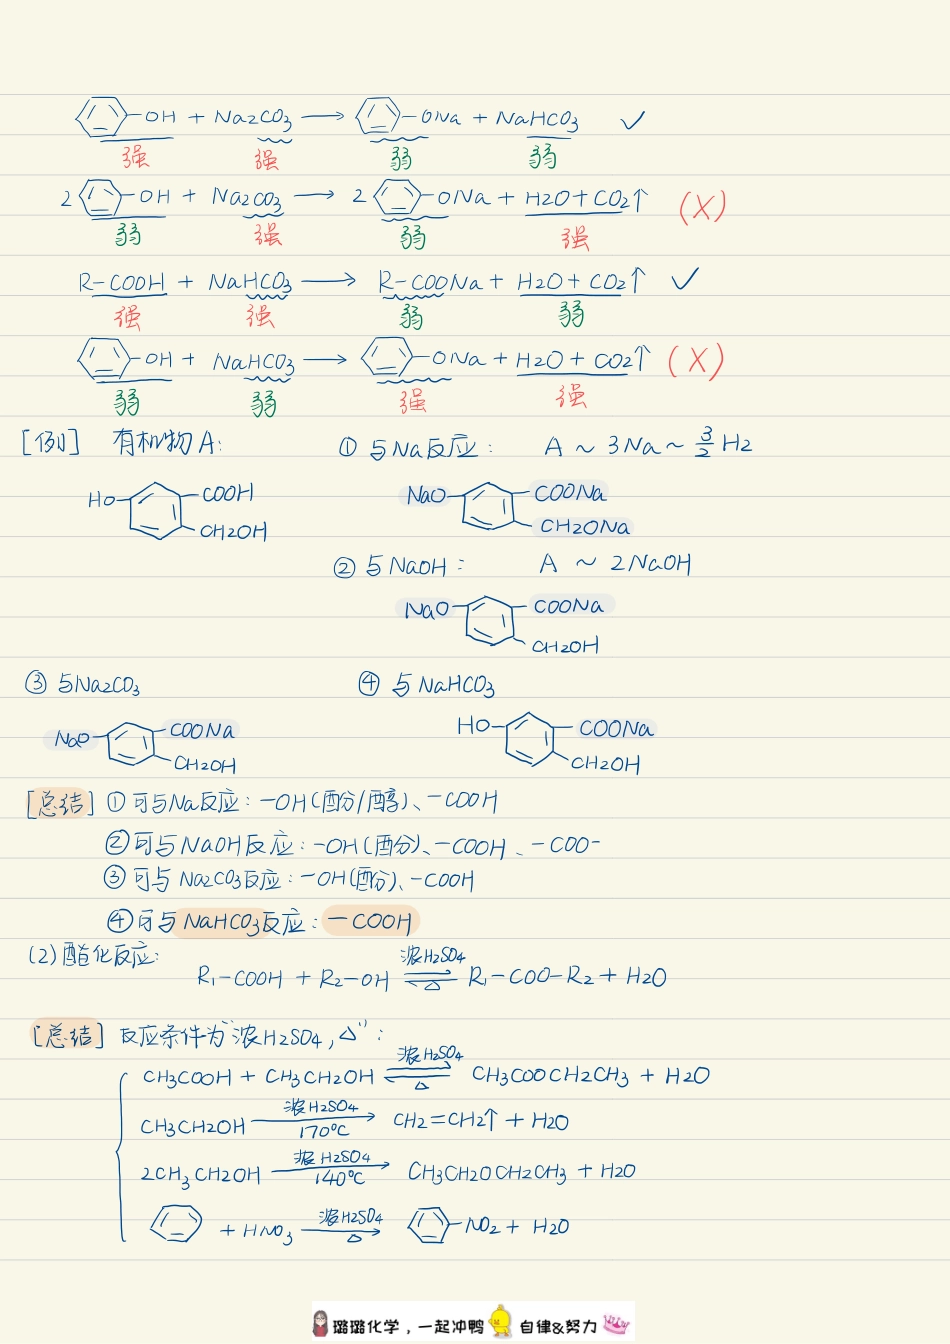 -OH + Na2CO3 ⟶ -ONa + NaHCO3 ✓
强 强 弱 弱
2 -OH + Na2CO3 ⟶ 2 -ONa + H2O + CO2↑ (X)
弱 强 弱 强
R-COOH + NaHCO3 ⟶ R-COONa + H2O + CO2↑ ✓
强 强 弱 弱
-OH + NaHCO3 ⟶ -ONa + H2O + CO2↑ (X)
弱 弱 强 强
[例] 有机物A: ① 与Na反应: A ~ 3Na ~ 3/2 H2
HO- -COOH NaO- -COONa
-CH2OH -CH2ONa
② 与NaOH: A ~ 2NaOH
NaO- -COONa
-CH2OH
③ 与Na2CO3 ④ 与NaHCO3
NaO- -COONa HO- -COONa
-CH2OH -CH2OH
[总结] ①可与Na反应: -OH(酚/醇)、-COOH
②可与NaOH反应: -OH(酚)、-COOH、-COO-
③可与Na2CO3反应: -OH(酚)、-COOH
④可与NaHCO3反应: -COOH
(2)酯化反应:
R1-COOH + R2-OH ⇌ 浓H2SO4 △ R1-COO-R2 + H2O
[总结] 反应条件为"浓H2SO4,△":
CH3COOH + CH3CH2OH ⇌ 浓H2SO4 △ CH3COOCH2CH3 + H2O
CH3CH2OH ⟶ 浓H2SO4 170℃ CH2=CH2↑ + H2O
2CH3CH2OH ⟶ 浓H2SO4 140℃ CH3CH2OCH2CH3 + H2O
+ HNO3 ⟶ 浓H2SO4 △ -NO2 + H2O
璐璐化学，一起冲鸭 自律&努力